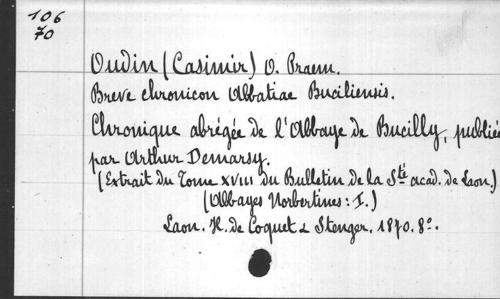 106
70
Oudin (Casimir) O. Praem.
Breve chronicon Abbatiae Buciliensis.
Chronique abrégée de l'Abbaye de Bucilly, publiée
par Arthur Demarsy.
(Extrait du Tome XVIII du Bulletin de la Sté acad. de Laon.)
(Abbayes Norbertines: I.)
Laon. H. de Coquet & Stenger. 1870. 8º.